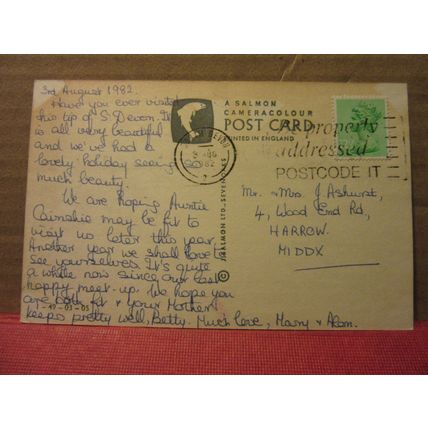 3rd August 1982.
Have you ever visited
this tip of S. Devon. It
is all very beautiful
and we've had a
lovely holiday seeing so
much beauty.
We are hoping Auntie
may be fit to
visit us later this year.
Another year we shall love
see yourselves. It's quite
a while now since our last
happy meet-up. We hope you
are both fit & your Mother
keeps pretty well, Betty. Much love, Mary & Alan.
1-47-03-05
A SALMON
CAMERACOLOUR
POST CARD
PRINTED IN ENGLAND
© J. SALMON LTD., SEVENOAKS
DEVON
AUG
1982
properly
addressed
POSTCODE IT
Mr. & Mrs J Ashurst,
4, Wood End Rd,
HARROW.
MIDDX